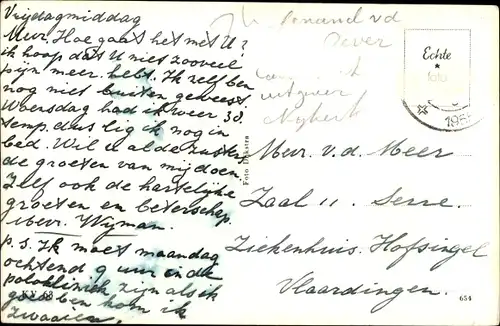 Vrijdagmiddag
Mevr. Hoe gaat het met U?
ik hoop dat U niet zooveel
pijn meer hebt. Ik zelf ben
nog niet buiten geweest.
Woensdag had ik weer 38.
temp. dus lig ik nog in
bed. Wil u al de zusters
de groeten van mij doen.
Zelf ook de hartelijke
groeten en beterschap.
Mevr. Wijman.
P.S. Ik moet maandag
ochtend 9 uur en de
polokliniek zijn als ik
goed ben kom ik
zwaaien.
KY 63
Foto Dijkstra
Echte
foto
195
Mevr. v.d. Meer
Zaal 11. Serre.
Ziekenhuis. Hofsingel
Vlaardingen.
654